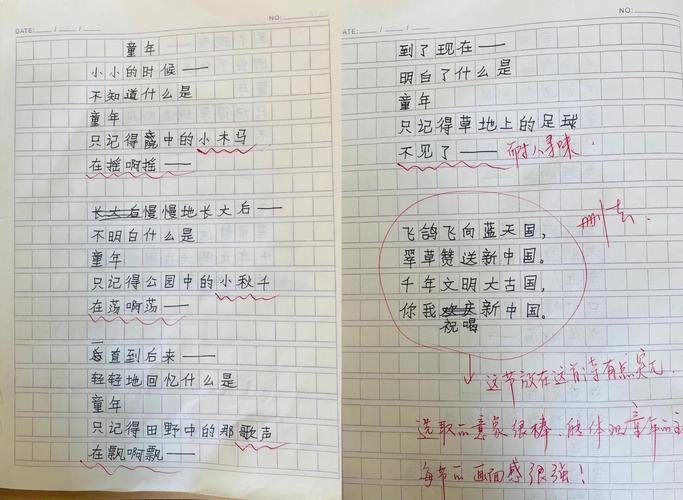 DATE: / /
NO:
童年
小小的时候——
不知道什么是
童年
只记得中的小木马
在摇啊摇——
长大后慢慢地长大后——
不明白什么是
童年
只记得公园中的小秋千
在荡啊荡——
直到后来——
轻轻地回忆什么是
童年
只记得田野中的那歌声
在飘啊飘——
DATE: / /
NO:
到了现在——
明白了什么是
童年
只记得草地上的足球
不见了—— 耐人寻味.
删去.
飞鸽飞向蓝天国,
翠草赞送新中国。
千年文明大古国,
你我欢庆新中国。
祝唱
这节放在这首诗有点突兀.
选取的意象很棒.能体现童年的主
每节的画面感很强!